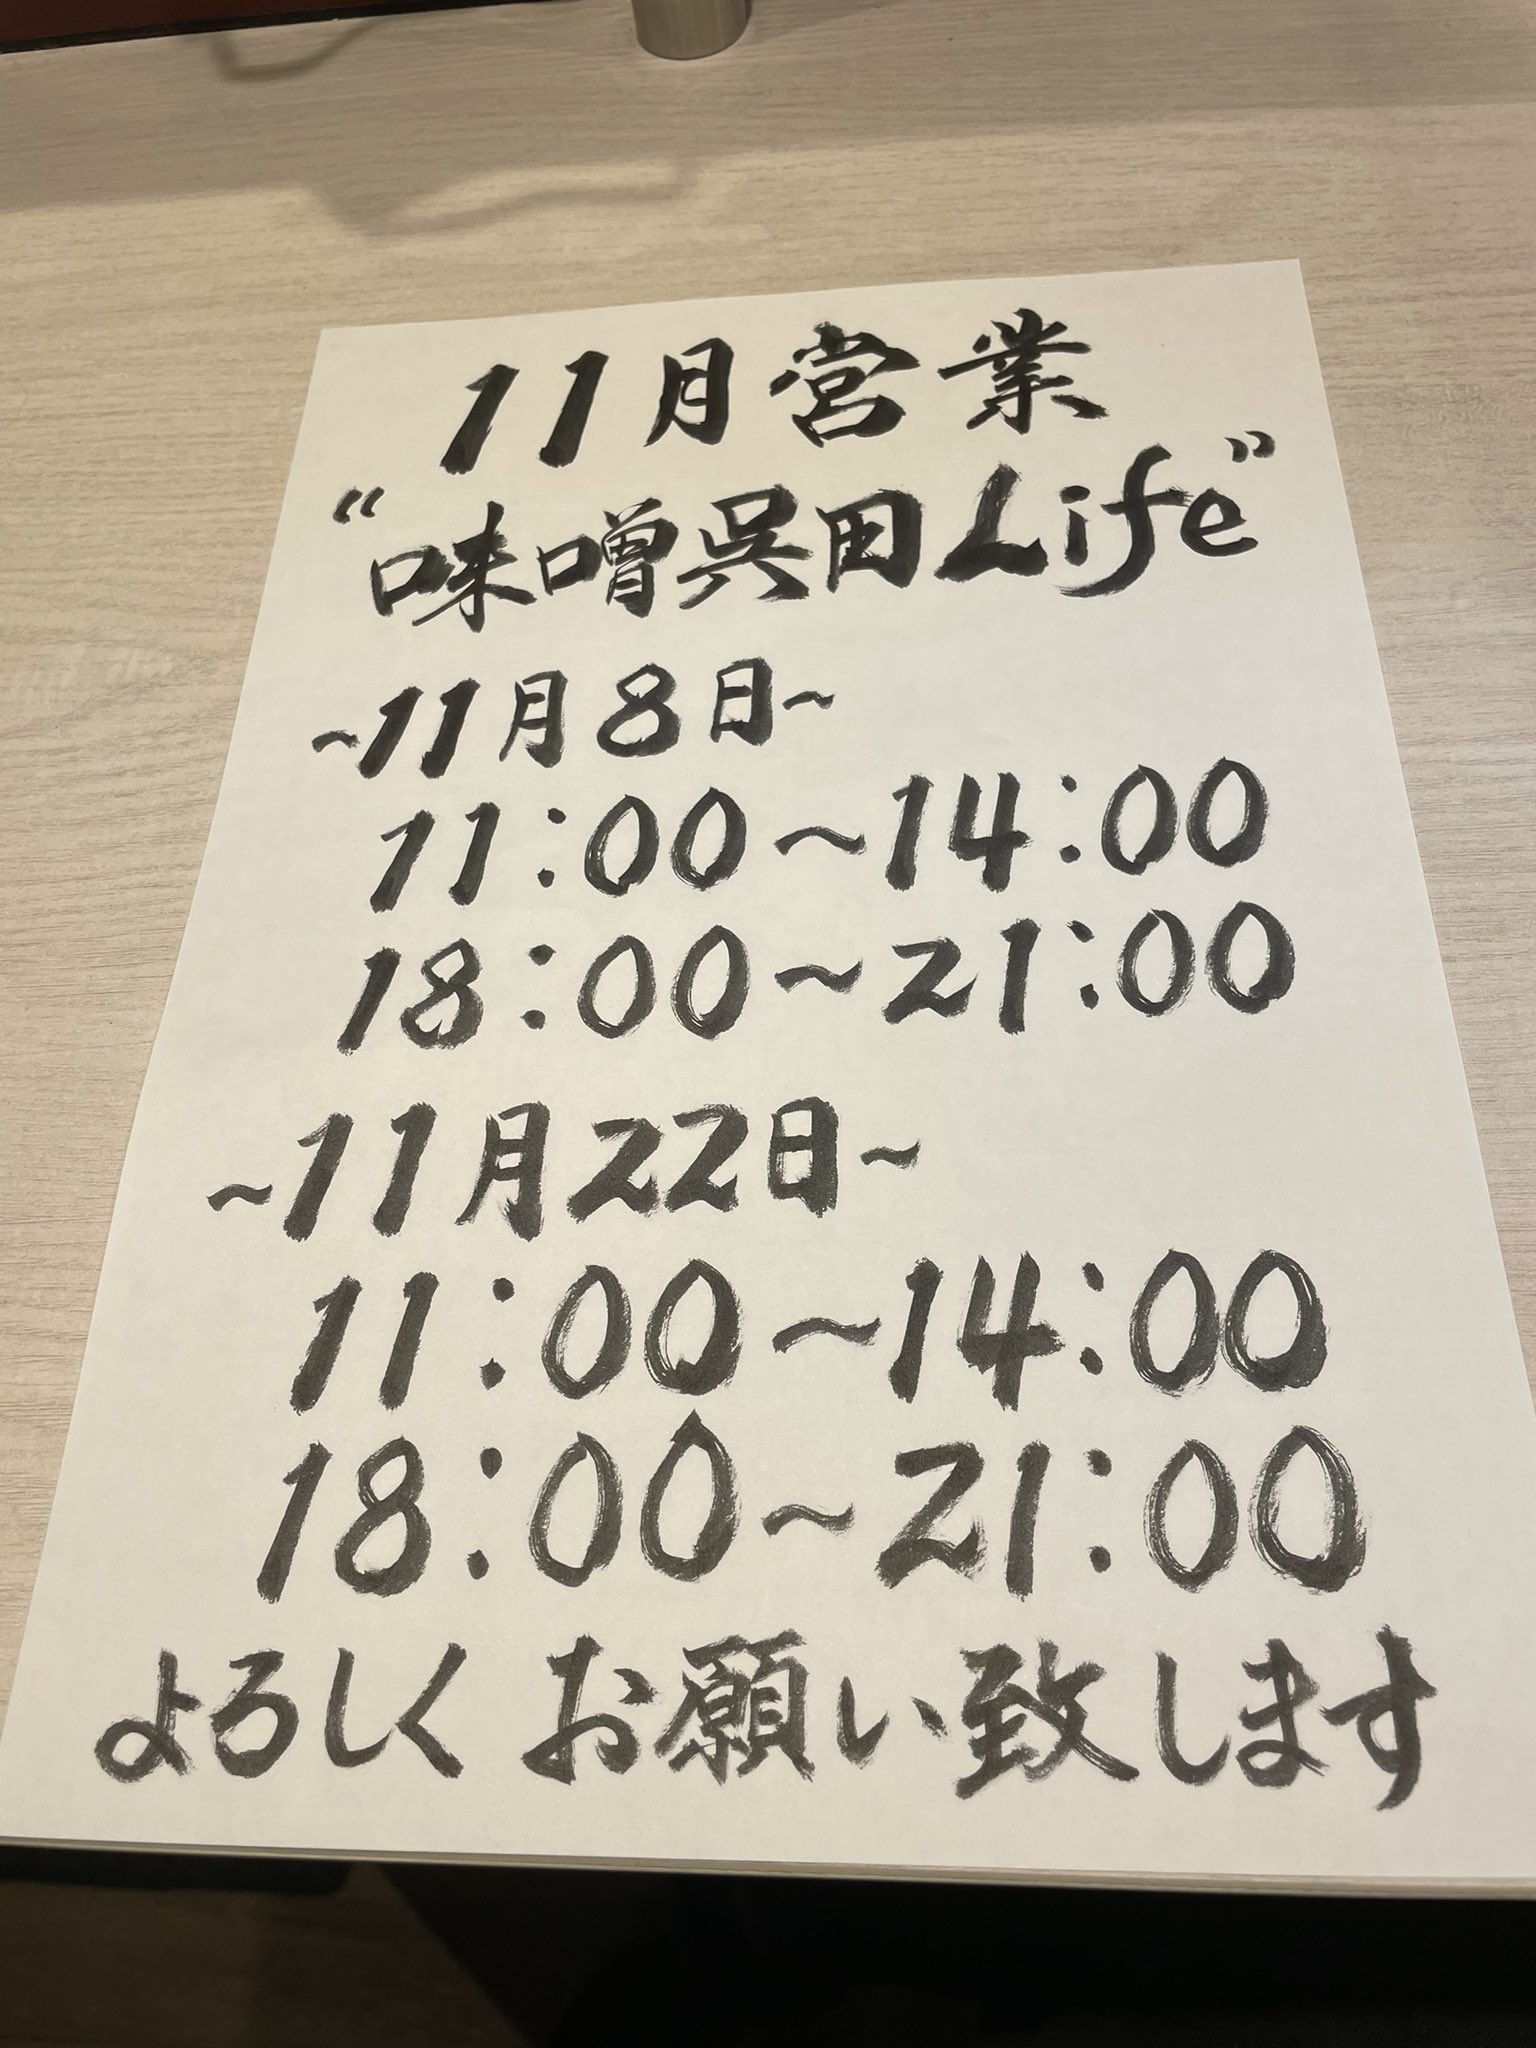 11月営業
“味噌呉田Life”
~11月8日~
11:00～14:00
18:00～21:00
~11月22日~
11:00～14:00
18:00～21:00
よろしくお願い致します